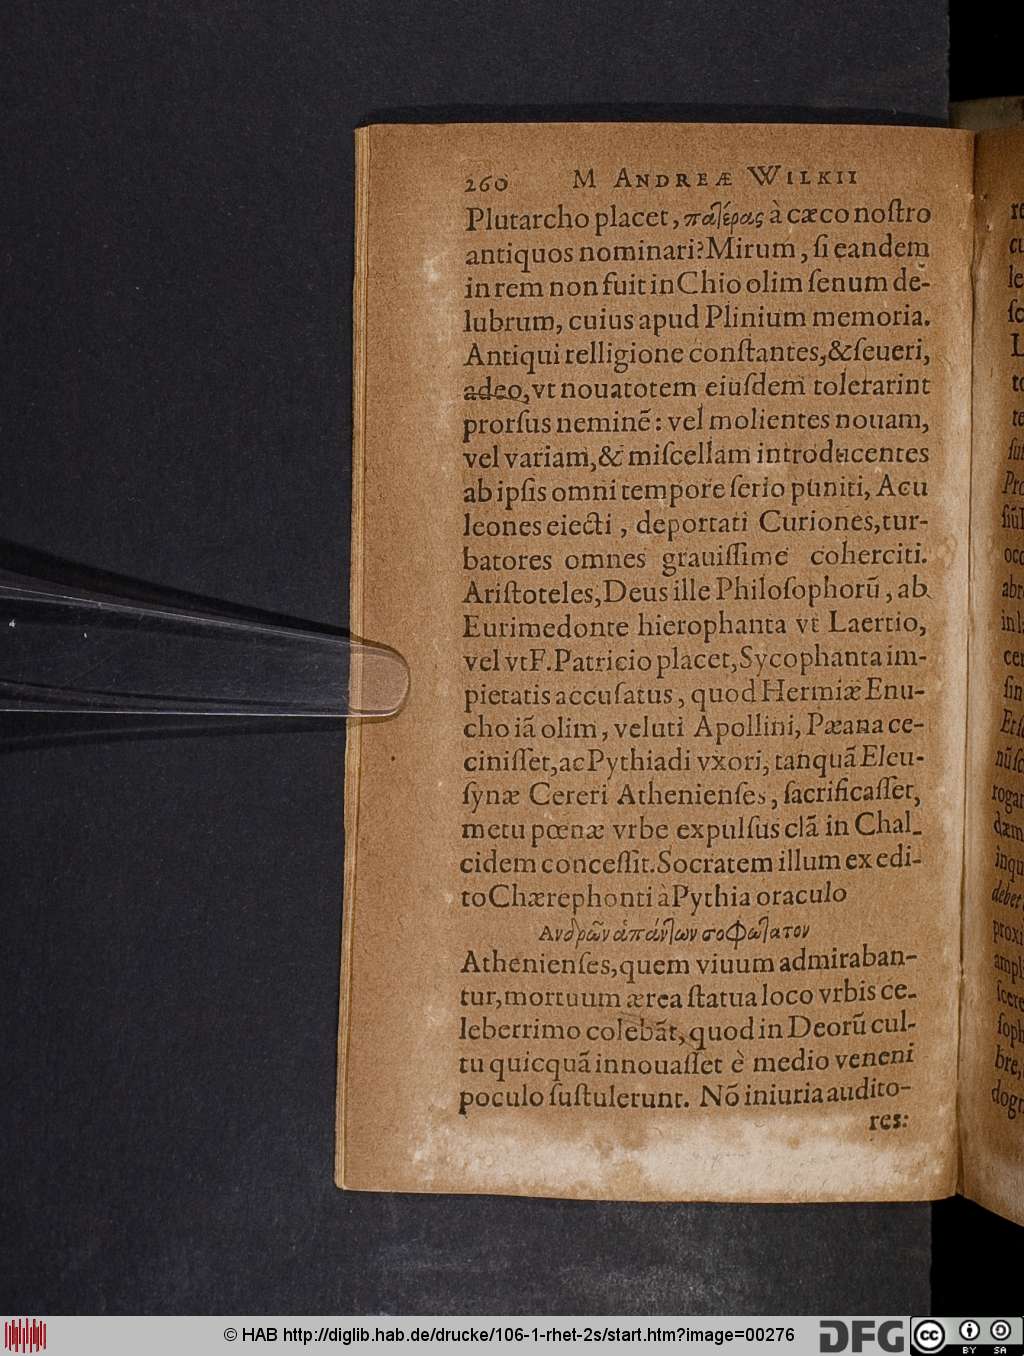 260 M ANDREÆ WILKII
Plutarcho placet, πατέρας à cæco noſtro
antiquos nominari? Mirum, ſi eandem
in rem non fuit in Chio olim ſenum de-
lubrum, cuius apud Plinium memoria.
Antiqui relligione conſtantes, & ſeueri,
adeo, vt nouatotem eiuſdem tolerarint
prorſus neminẽ: vel molientes nouam,
vel variam, & miſcellam introducentes
ab ipſis omni tempore ſerio puniti, Acu
leones eiecti, deportati Curiones, tur-
batores omnes grauiſſime coherciti.
Ariſtoteles, Deus ille Philoſophorũ, ab
Eurimedonte hierophanta vt Laertio,
vel vt F. Patricio placet, Sycophanta im-
pietatis accuſatus, quod Hermiæ Enu-
cho iã olim, veluti Apollini, Pæana ce-
ciniſſet, ac Pythiadi vxori, tanquã Eleu-
ſynæ Cereri Athenienſes, ſacrificaſſet,
metu pœnæ vrbe expulſus clã in Chal-
cidem conceſſit. Socratem illum ex edi-
to Chærephonti à Pythia oraculo
Ανδρῶν ἁπάντων σοφώτατον
Athenienſes, quem viuum admiraban-
tur, mortuum ærea ſtatua loco vrbis ce-
leberrimo colebãt, quod in Deorũ cul-
tu quicquã innouaſſet è medio veneni
poculo ſuſtulerunt. Nõ iniuria audito-
res:
© HAB http://diglib.hab.de/drucke/106-1-rhet-2s/start.htm?image=00276
DFG
cc BY SA